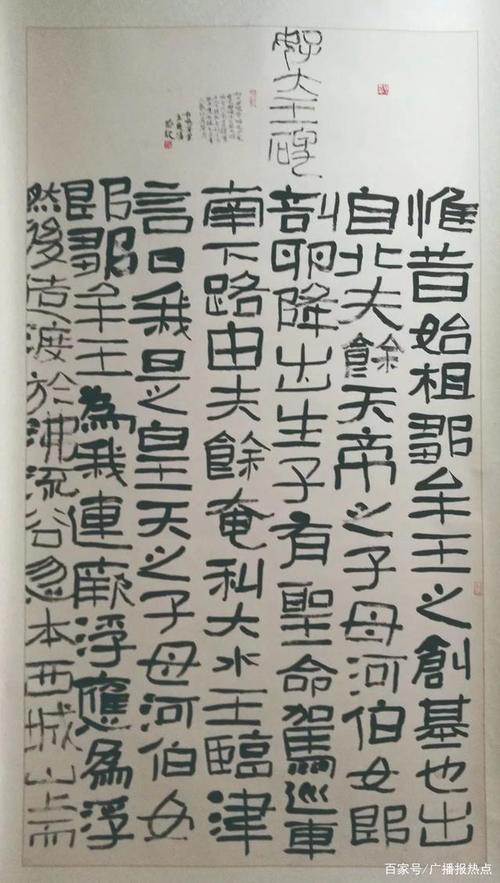 好大王碑
惟昔始祖鄒牟王之創基也出
自北夫餘天帝之子母河伯女郎
剖卵降出生子有聖命駕巡車
南下路由夫餘奄利大水王臨津
言曰我是皇天之子母河伯女
郎鄒牟王為我連浮應為浮
然後造渡於沸流谷忽本西城山上而
百家号/广播报热点